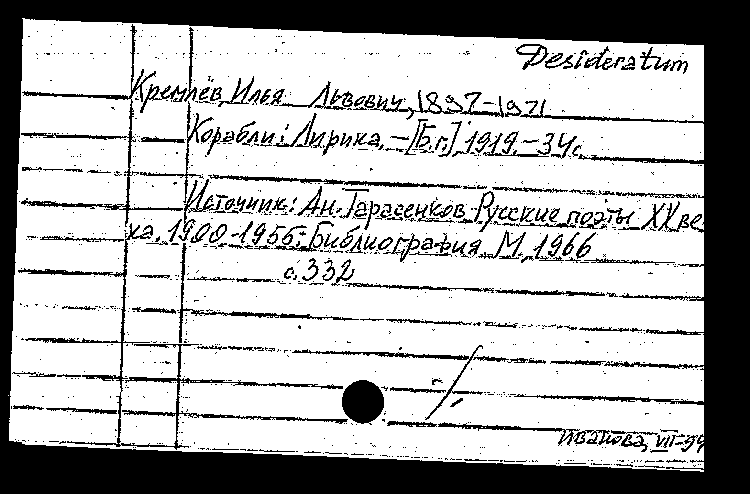 Desideratum
Кремлёв, Илья Львович, 1897-1971
Корабли: Лирика. – [Б.г.], 1919. – 34 с.
Источник: Ан. Тарасенков. Русские поэты XX ве-
ка. 1900-1955: Библиография. М., 1966
с. 332
Иванова, VII-99